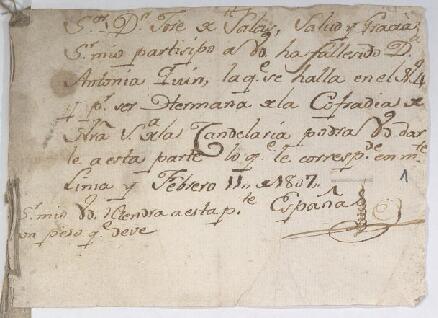 S.or D.n Jose de Salas, Salud y Gracia
S.r mio participo a Vd ha fallesido D.a
Antonia, la q.e se halla en el
y p.r ser Hermana de la Cofradia de
Ntra S.a de la Candelaria podra Vd dar
le a esta parte lo q.e le corresp.de en
Lima y Febrero 11,, de 1807,,
España
S.r mio Vd atendra a esta p.te
un peso q.e deve
1